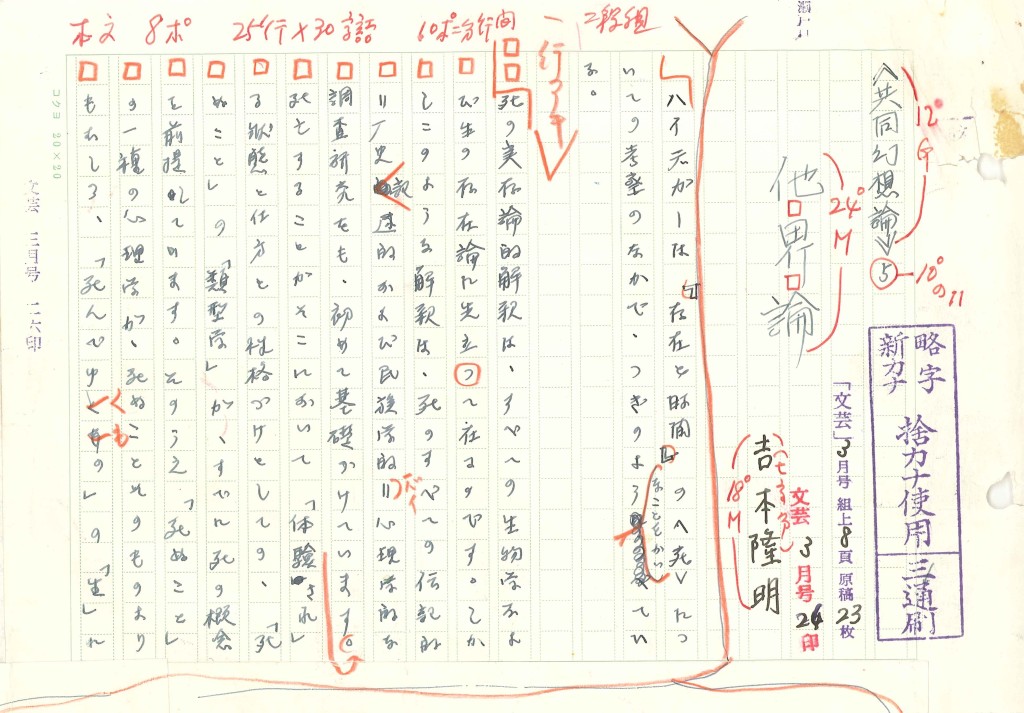 本文 8ポ 25行×30字詰 10ポ二分行間 二段組
一行アキ
12° G
〈共同幻想論〉 5
10°の11
他界論
24° M
吉本隆明
18° M
略字
新カナ
捨カナ使用
三通刷
「文芸」3月号 組上8頁 原稿23枚
文芸 3月号 24印
ハイデガーは「存在と時間」の〈死〉につ
いての考察のなかで、つぎのよう
なことをかい
てい
る。
死の実存論的解釈は、すべての生物学およ
び生の存在論に先立つて在るのです。しか
しこのような解釈は、死のすべての伝記的
=歴史記
的および民族学的=心理学的な
調査研究をも、初めて基礎づけています。
死去することがそこにおいて「体験され」
る状態と仕方との性格づけとしての、「死
ぬこと」の「類型学」が、すでに死の概念
を前提してゐます。そのうえ「死ぬこと」
の一種の心理学が、死ぬことそのものより
もむしろ、「死んでゆくもの」の「生」に
コクヨ 20×20
文芸 三月号 二六印